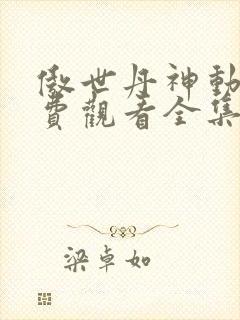 傲世丹神動
費觀看全集
梁卓如